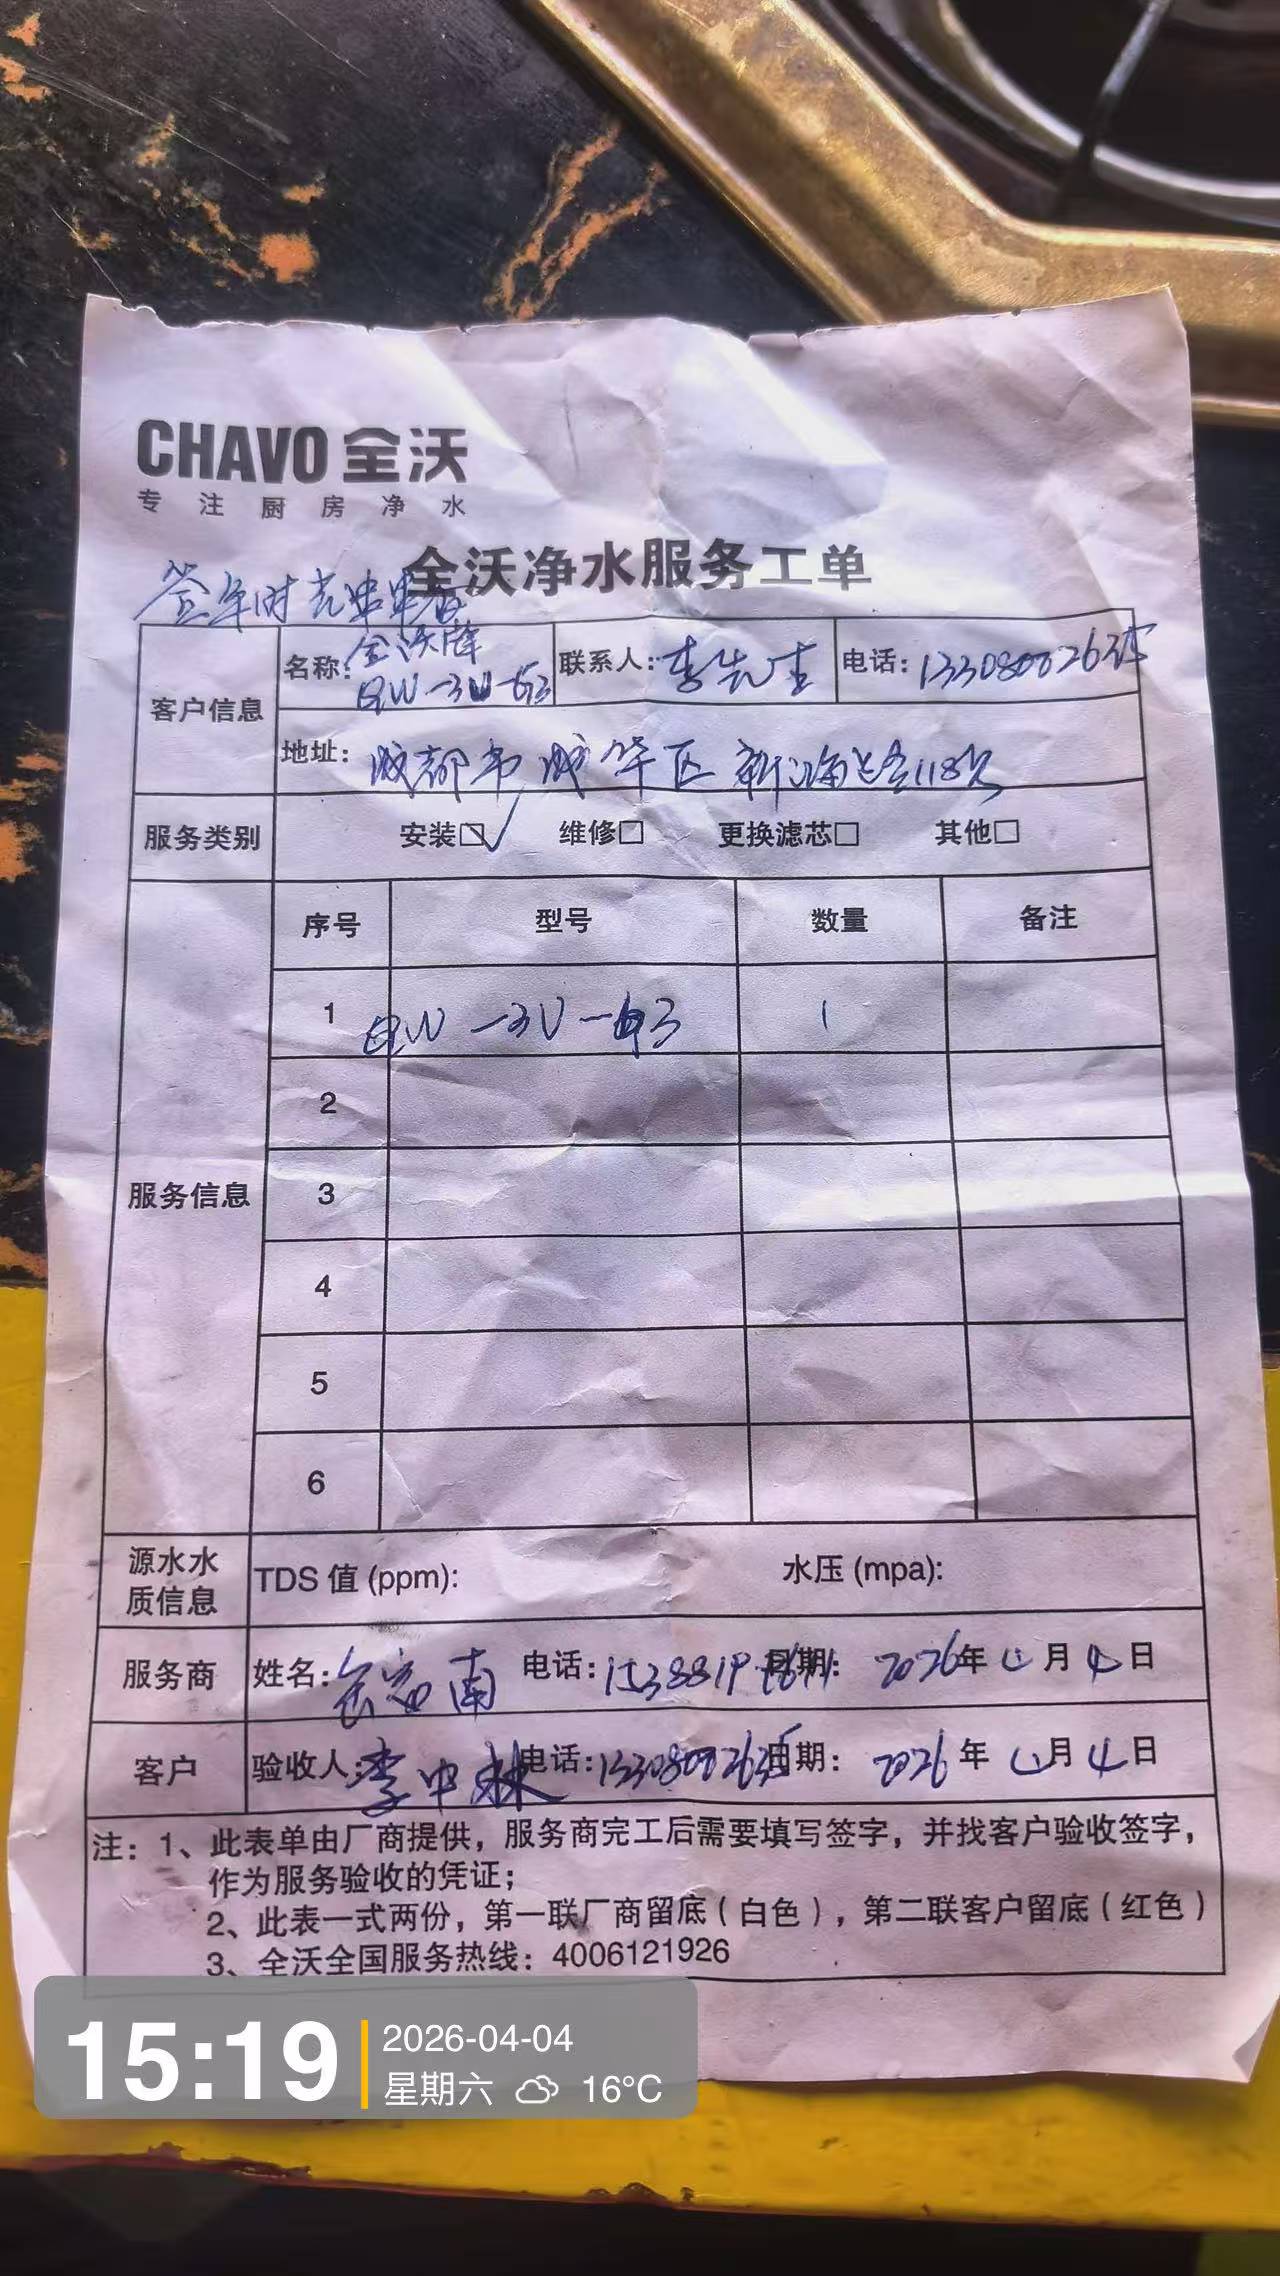 CHAVO 全沃
专注厨房净水
全沃净水服务工单
客户信息
名称: 全沃牌
联系人: 李先生
电话:
地址: 成都市成华区新鸿路118号
服务类别 安装☑ 维修□ 更换滤芯□ 其他□
服务信息
序号 型号 数量 备注
1 QW-3U- 1
2
3
4
5
6
源水水质信息 TDS 值 (ppm): 水压 (mpa):
服务商 姓名: 电话: 日期: 2026年4月4日
客户 验收人: 李中林 电话: 日期: 2026年4月4日
注: 1、此表单由厂商提供，服务商完工后需要填写签字，并找客户验收签字，
作为服务验收的凭证；
2、此表一式两份，第一联厂商留底（白色），第二联客户留底（红色）
3、全沃全国服务热线：4006121926
15:19
2026-04-04
星期六 16°C